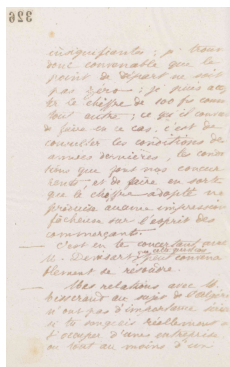 326
insignifiantes ; je trouve
donc convenable que le
point de départ ne soit
pas zéro ; je puis
le chiffre de 100 fs comme
tout autre ; ce qu'il
de faire en ce cas, c'est de
consulter les conditions des
années dernières, les
que font nos
, et de faire en sorte
que le chiffre adopté ne
produise aucune impression
fâcheuse sur l'esprit des
commerçants.
C'est en te concertant avec
M. que cette question
peut
blement se résoudre.
Mes relations avec M.
au sujet de l'Algérie
n'ont pas d'importance
si tu songeais réellement à
t'occuper d'une entreprise
ou tout au moins d'en